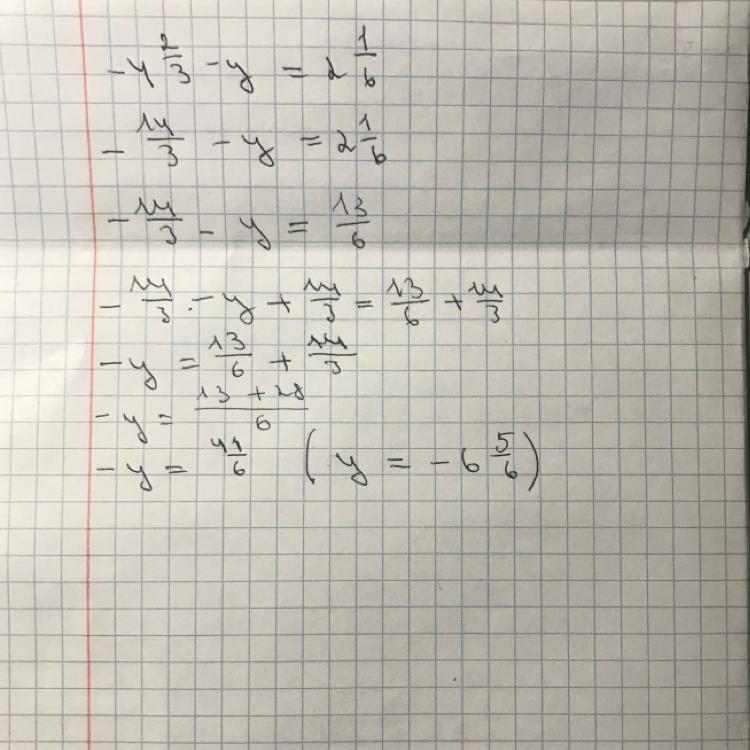 -4 2/3 - y = 2 1/6
- 14/3 - y = 2 1/6
- 14/3 - y = 13/6
- 14/3 - y + 14/3 = 13/6 + 14/3
- y = 13/6 + 14/3
- y = (13 + 28)/6
- y = 41/6 (y = -6 5/6)